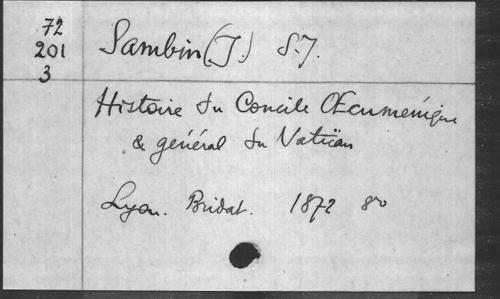 72
201
3
Sambin (J.) S.J.
Histoire du Concile Œcuménique
& général du Vatican
Lyon. Bridat. 1872 8º